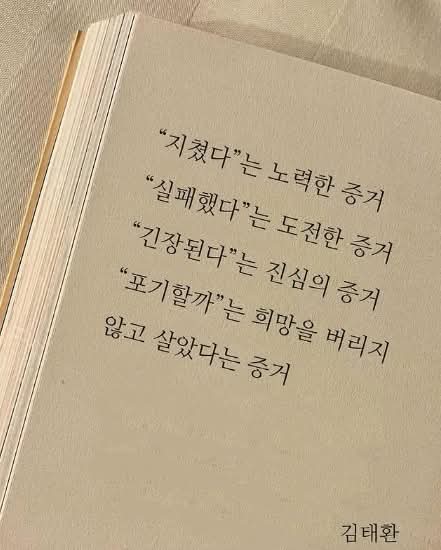 “지쳤다”는 노력한 증거
“실패했다”는 도전한 증거
“긴장된다”는 진심의 증거
“포기할까”는 희망을 버리지
않고 살았다는 증거
김태환